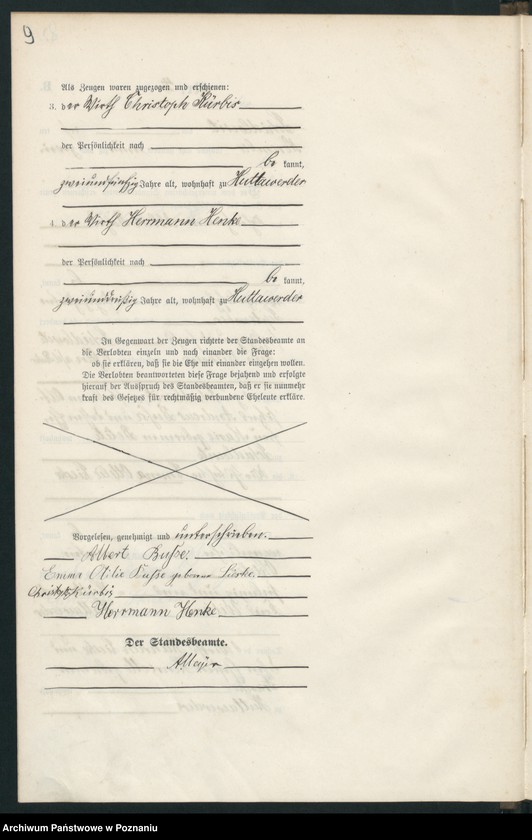 9
Als Zeugen waren zugezogen und erschienen:
3. der Wirth Christoph Kürbis
der Persönlichkeit nach
be kannt,
zweiundfünfzig Jahre alt, wohnhaft zu Huttawerder
4. der Wirth Herrmann Henke
der Persönlichkeit nach
be kannt,
zweiunddreißig Jahre alt, wohnhaft zu Huttawerder
In Gegenwart der Zeugen richtete der Standesbeamte an
die Verlobten einzeln und nach einander die Frage:
ob sie erklären, daß sie die Ehe mit einander eingehen wollen.
Die Verlobten beantworteten diese Frage bejahend und erfolgte
hierauf der Ausspruch des Standesbeamten, daß er sie nunmehr
kraft des Gesetzes für rechtmäßig verbundene Eheleute erkläre.
Vorgelesen, genehmigt und unterschrieben.
Albert Buße.
Emma Otilie Buße geborene
Christoph Kürbis
Herrmann Henke
Der Standesbeamte.
Archiwum Państwowe w Poznaniu